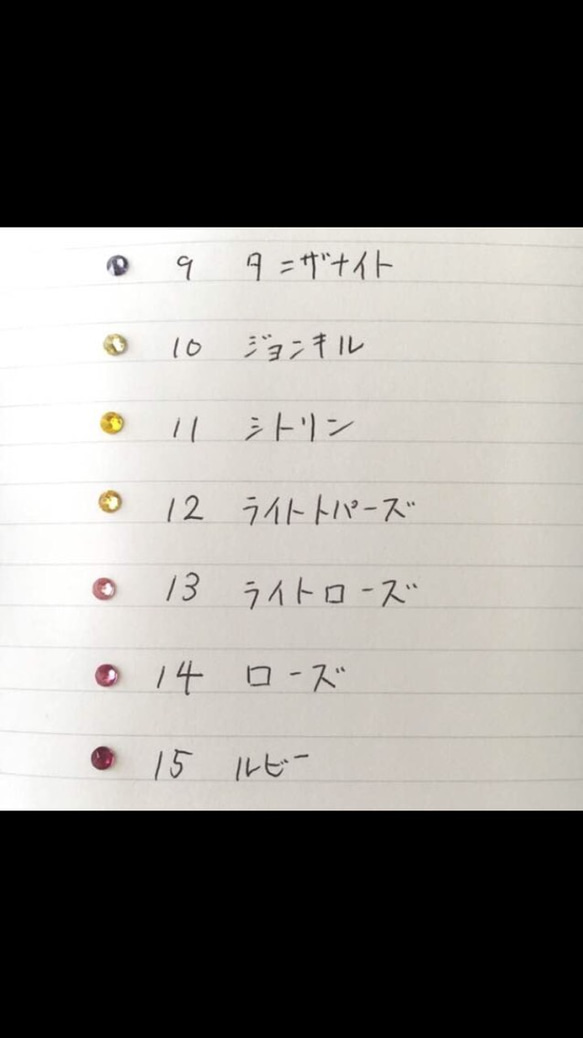 9 タニザナイト
10 ジョンキル
11 シトリン
12 ライトトパーズ
13 ライトローズ
14 ローズ
15 ルビー